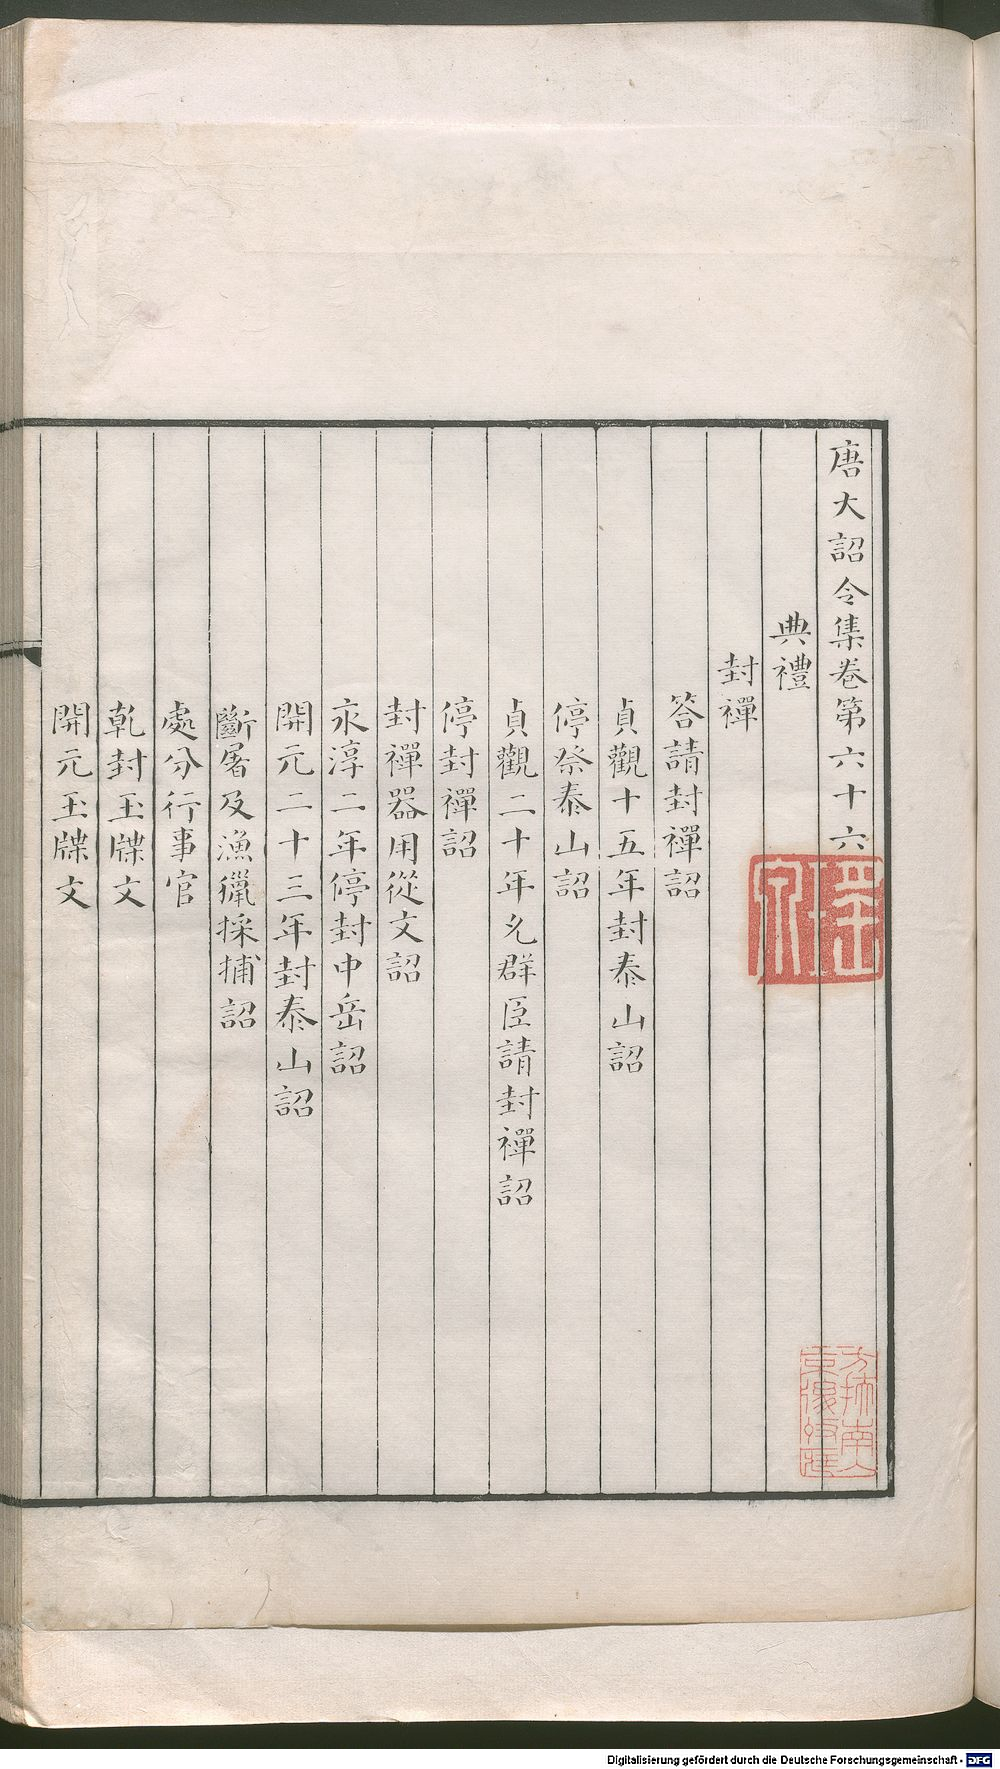 唐大詔令集卷第六十六
典禮
封禪
答請封禪詔
貞觀十五年封泰山詔
停祭泰山詔
貞觀二十年允群臣請封禪詔
停封禪詔
封禪器用從文詔
永淳二年停封中岳詔
開元二十三年封泰山詔
斷屠及漁獵採捕詔
處分行事官
乾封玉牒文
開元玉牒文
Digitalisierung gefördert durch die Deutsche Forschungsgemeinschaft - DFG